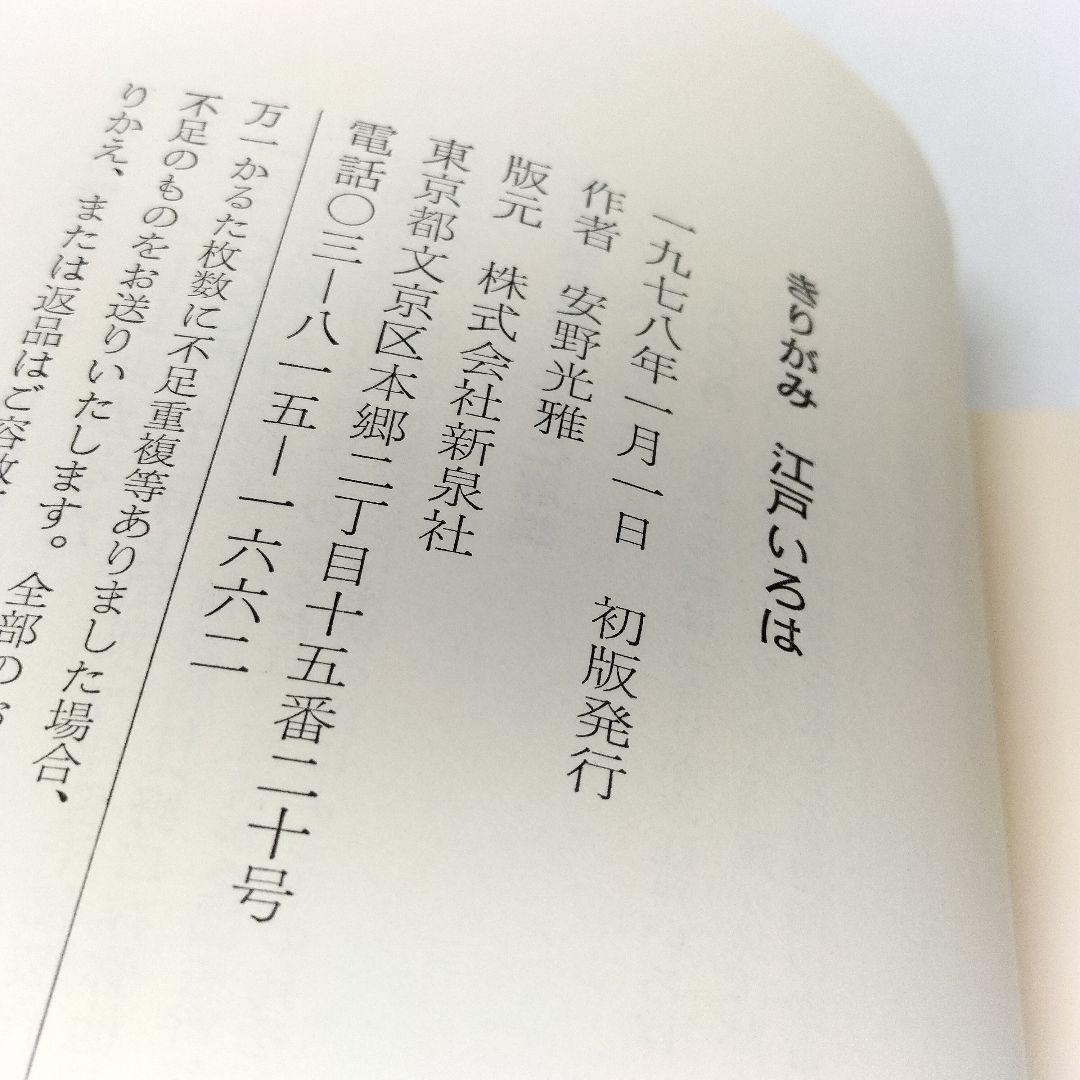 きりがみ　江戸いろは
一九七八年一月一日　初版発行
作者　安野光雅
版元　株式会社新泉社
東京都文京区本郷二丁目十五番二十号
電話〇三ー八一五ー一六六二
万一かるた枚数に不足重複等ありました場合、
不足のものをお送りいたします。全部のお
りかえ、または返品はご容赦